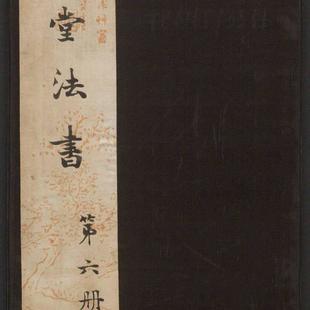 堂法書
第六册